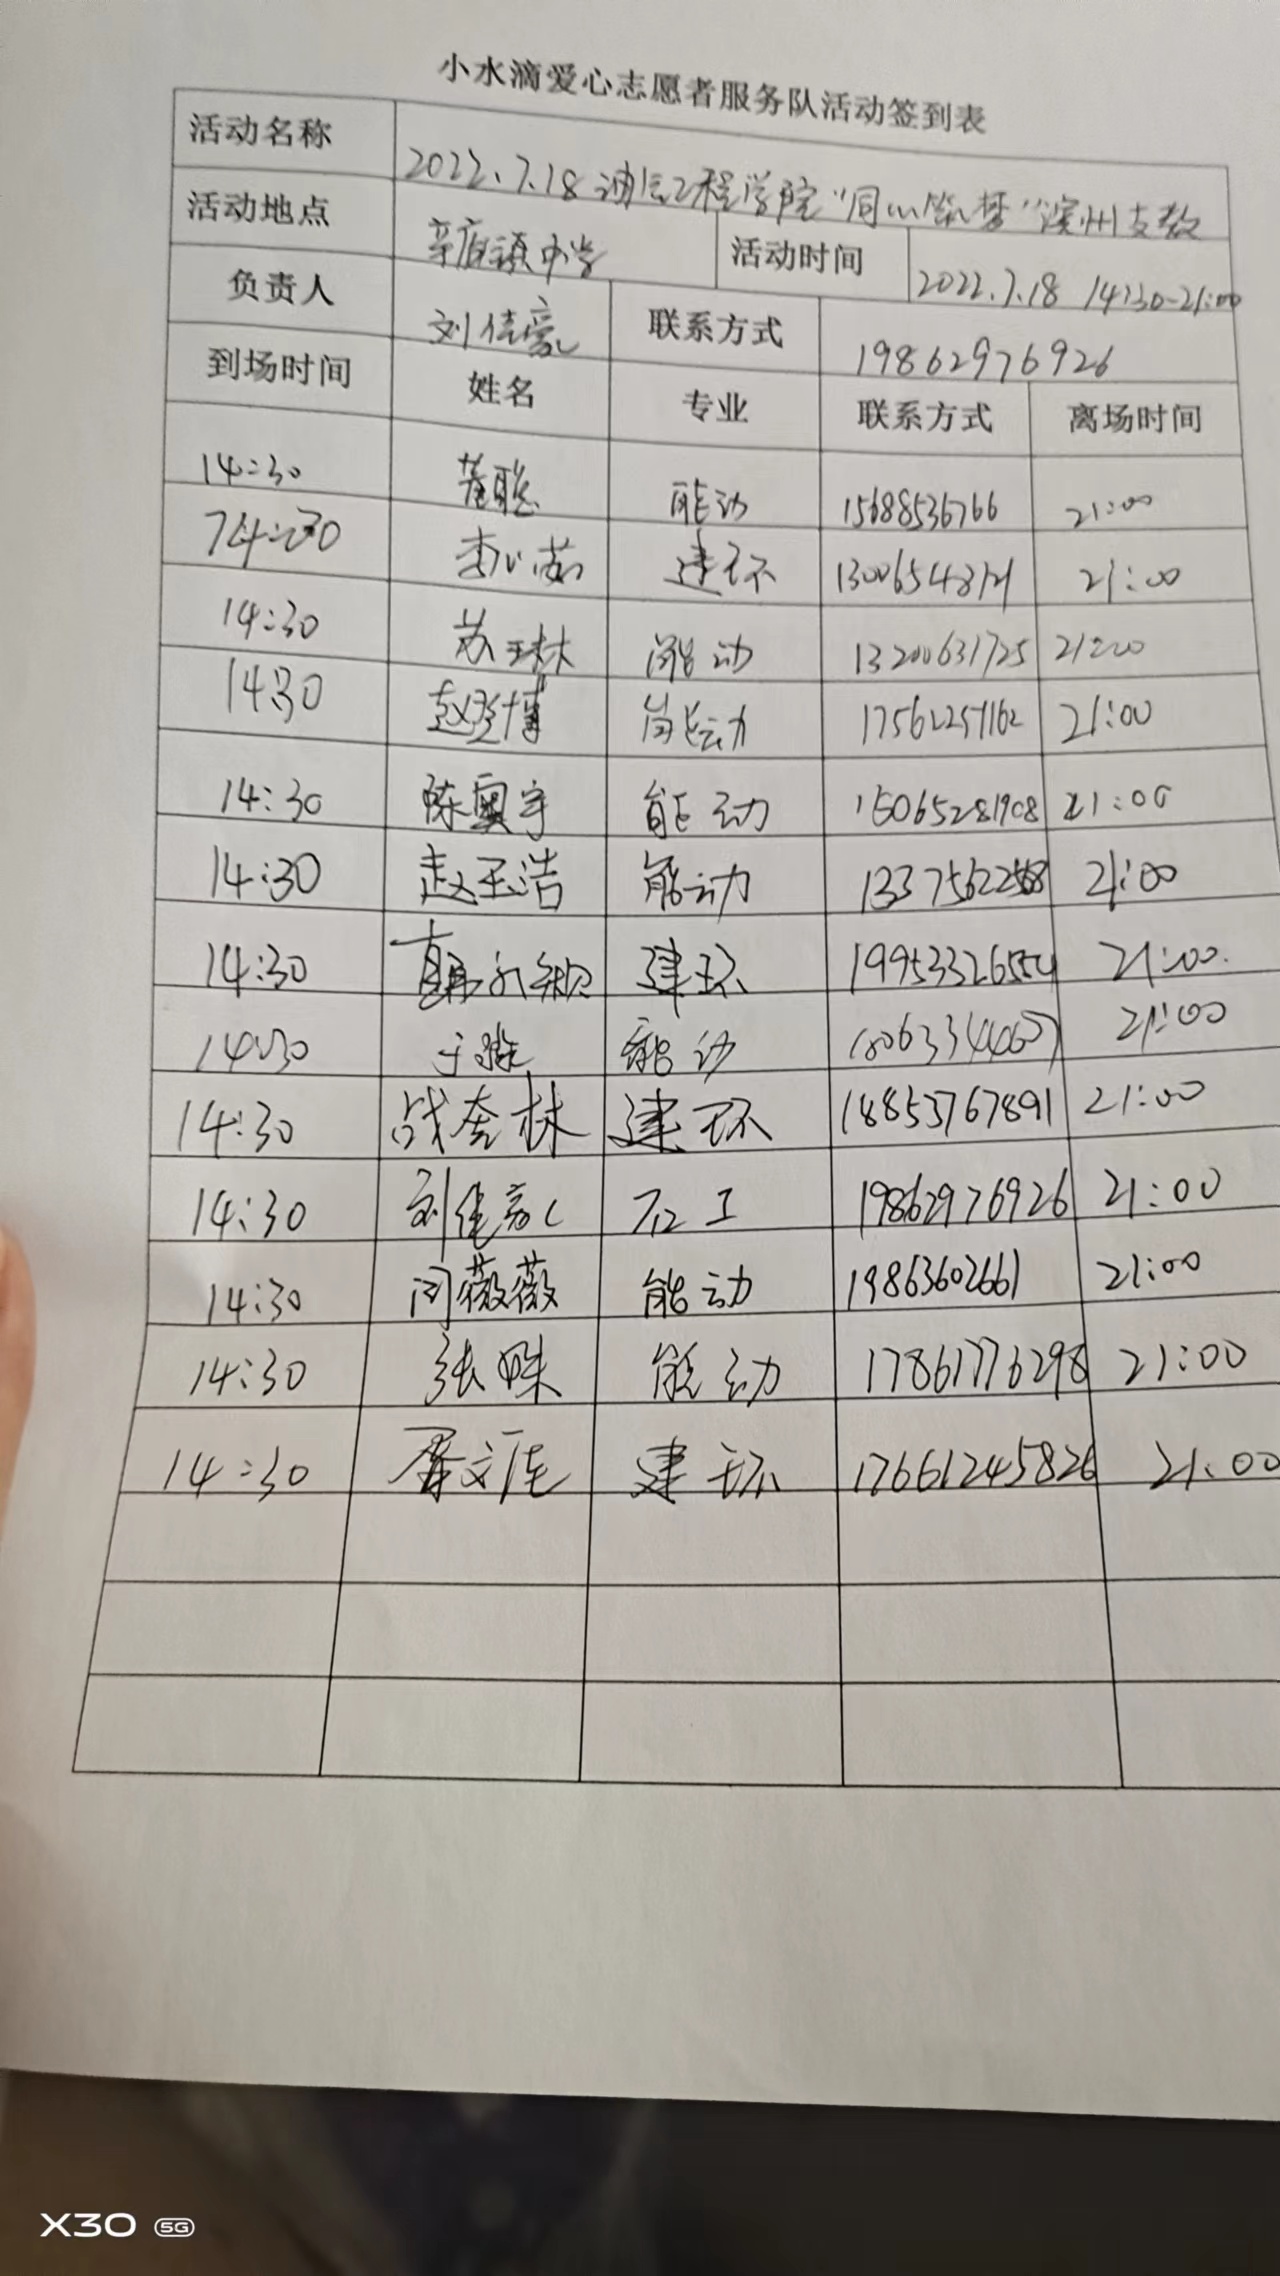 小水滴爱心志愿者服务队活动签到表
活动名称 2022.7.18 油气工程学院“同心筑梦”滨州支教
活动地点 辛店镇中学 活动时间 2022.7.18 14:30-21:00
负责人 刘佳豪 联系方式 19862976926
到场时间 姓名 专业 联系方式 离场时间
14:30 董聪 能动 15688536766 21:00
14:30 建环 21:00
14:30 苏琳 能动 13200631725 21:00
14:30 赵登博 能动 17562257162 21:00
14:30 陈奥宇 能动 15065281908 21:00
14:30 赵玉浩 能动 21:00
14:30 建环 19953326554 21:00
14:30 能动 21:00
14:30 战奎林 建环 18853767891 21:00
14:30 刘佳豪 石工 19862976926 21:00
14:30 闫薇薇 能动 19863602661 21:00
14:30 张姝 能动 17861776298 21:00
14:30 建环 17661245826 21:00
X30 5G